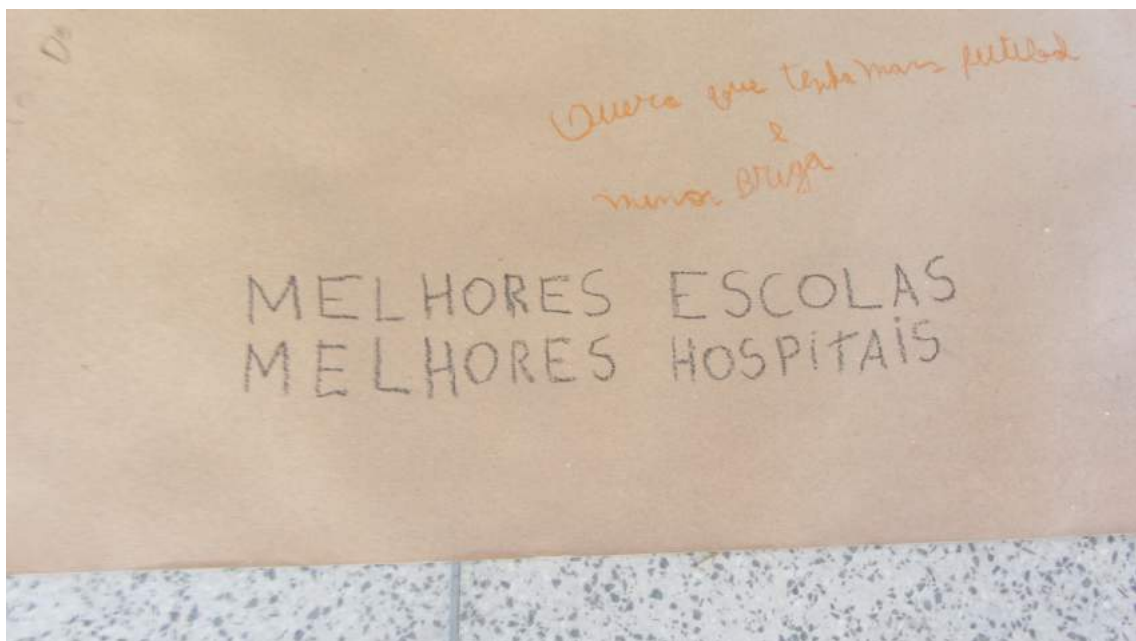 Do
Quero que tenha mais
e
menos Briga
MELHORES ESCOLAS
MELHORES HOSPiTAiS